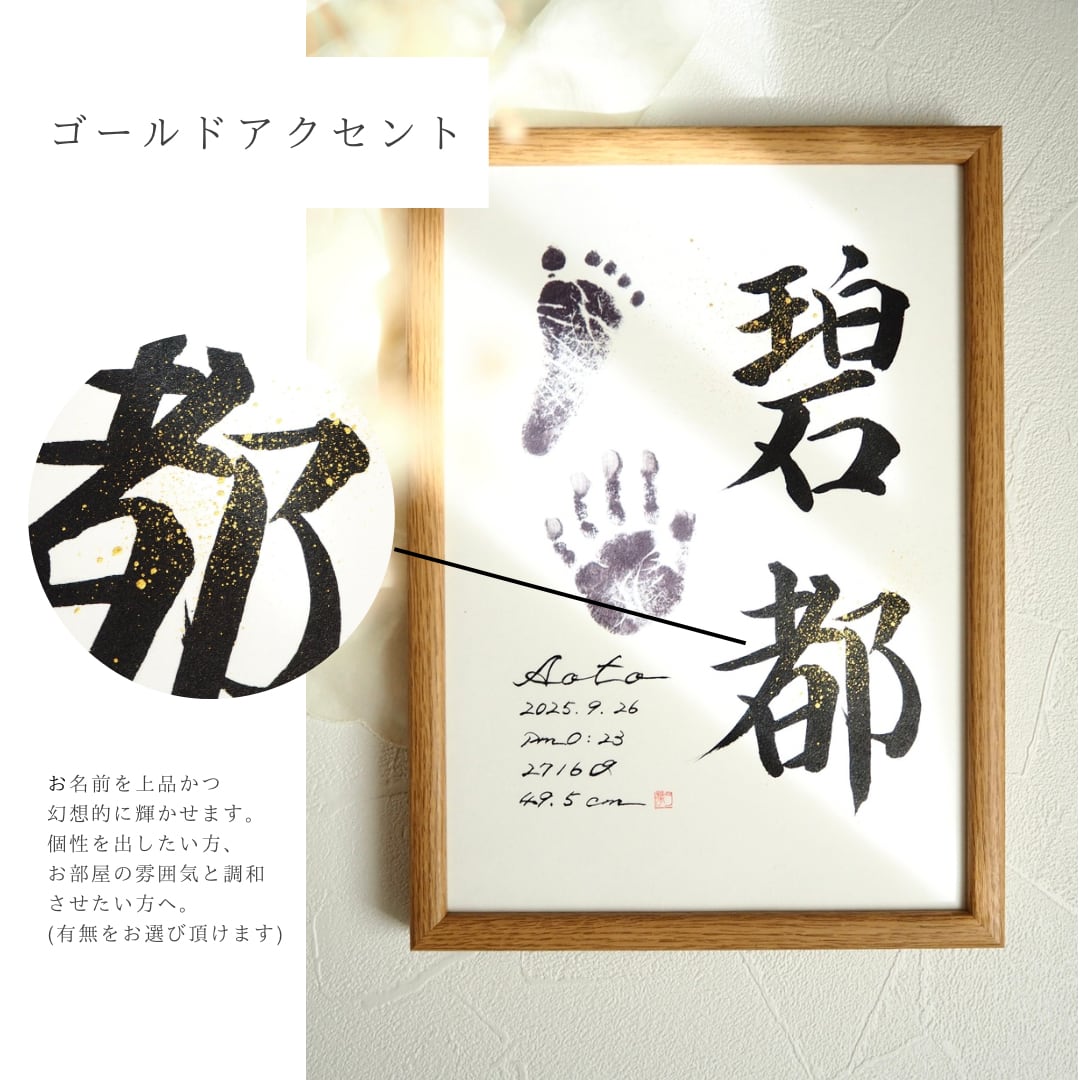 ゴールドアクセント
碧都
Aoto
2025.9.26
Pm0:23
2716g
49.5cm
都
お名前を上品かつ
幻想的に輝かせます。
個性を出したい方、
お部屋の雰囲気と調和
させたい方へ。
(有無をお選び頂けます)